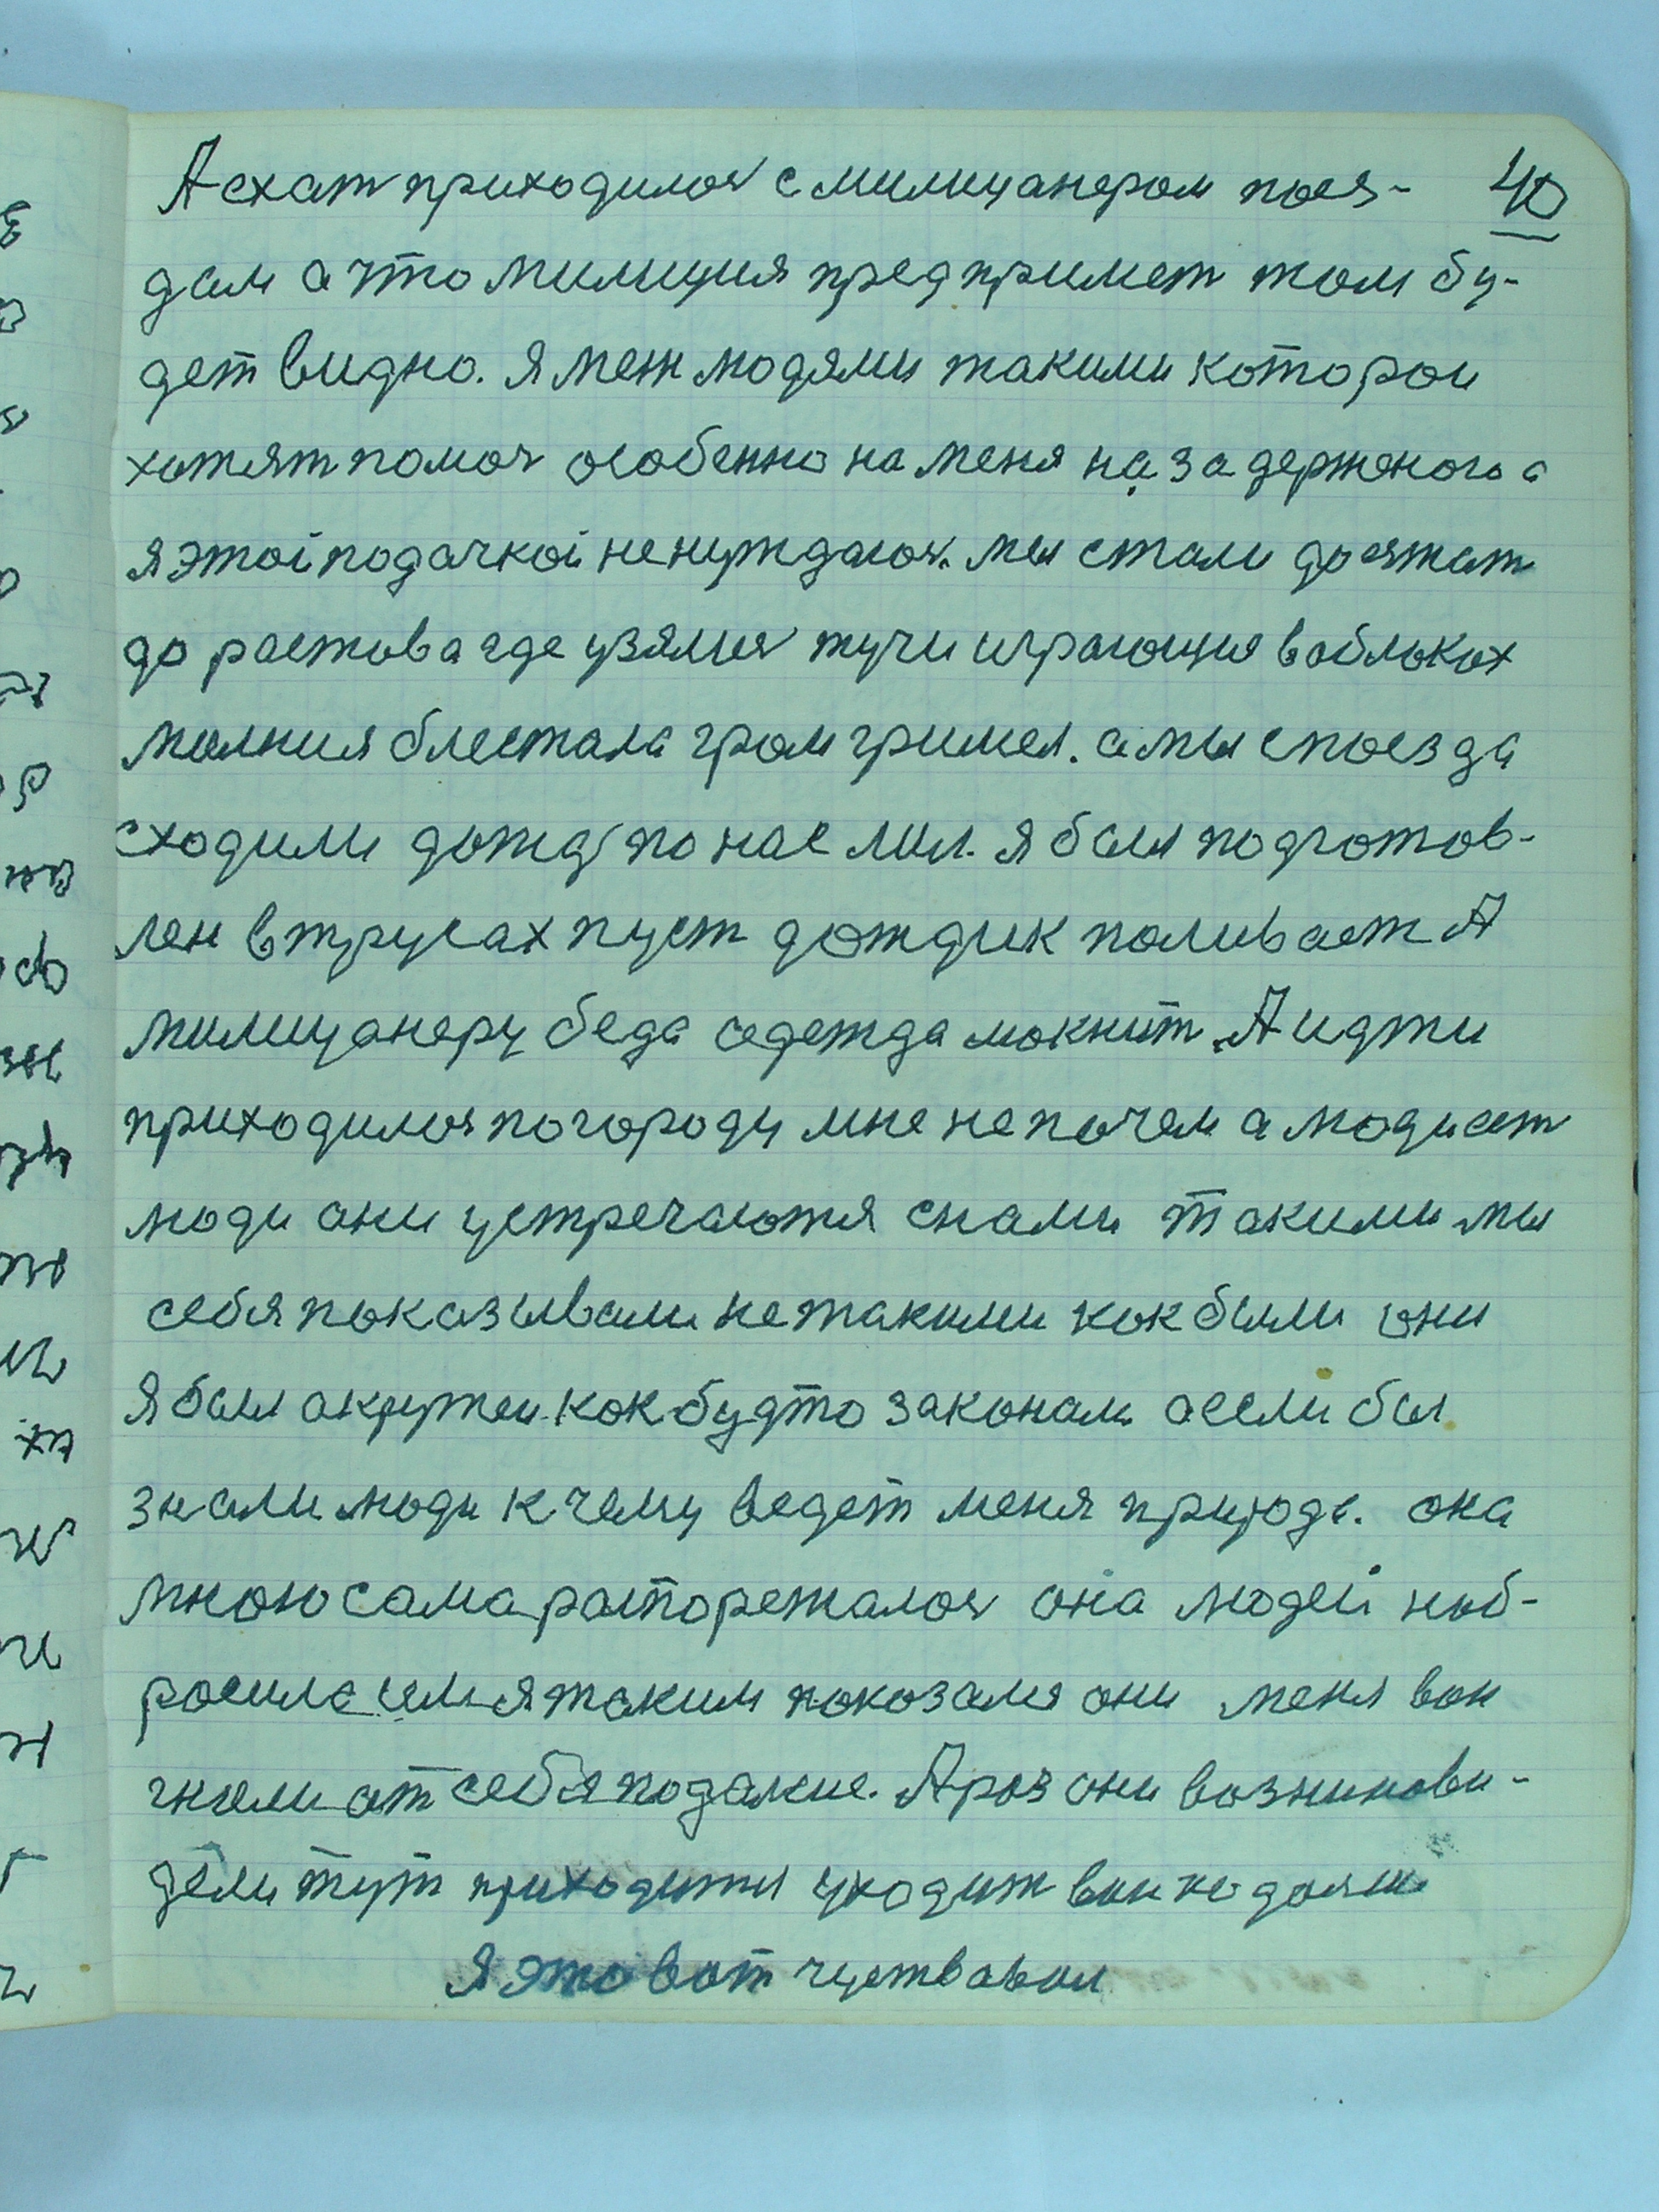 А ехат приходилося с милицанером поез- 40
дам а что милиция предпримет там бу-
дет видно. Я меж людями такими которои
хотят помоч особенно на меня на задержоного а
я этой подачкой не нуждаюся. мы стали доезжат
до растова где узялися тучи играющия в облоках
молния блестала гром гримел. а мы с поезда
сходили дожд по нас лил. Я был подготов-
лен в трусах пуст дождик поливает А
милицанеру беда одежда мокнит. А идти
приходилося по городу мне непочем а люди ест
люди они устречаются снами такими мы
себя показывали не такими как были они
Я был акружен как будто законам а если бы
знали люди к чему ведет меня природа. она
мною сама распорежалося она людей наб-
росила им я таким показался они меня вон
гнали от себя подалше. А раз они возниновы-
дели тут приходится уходит вон не доязш
Я это вот чуствовал